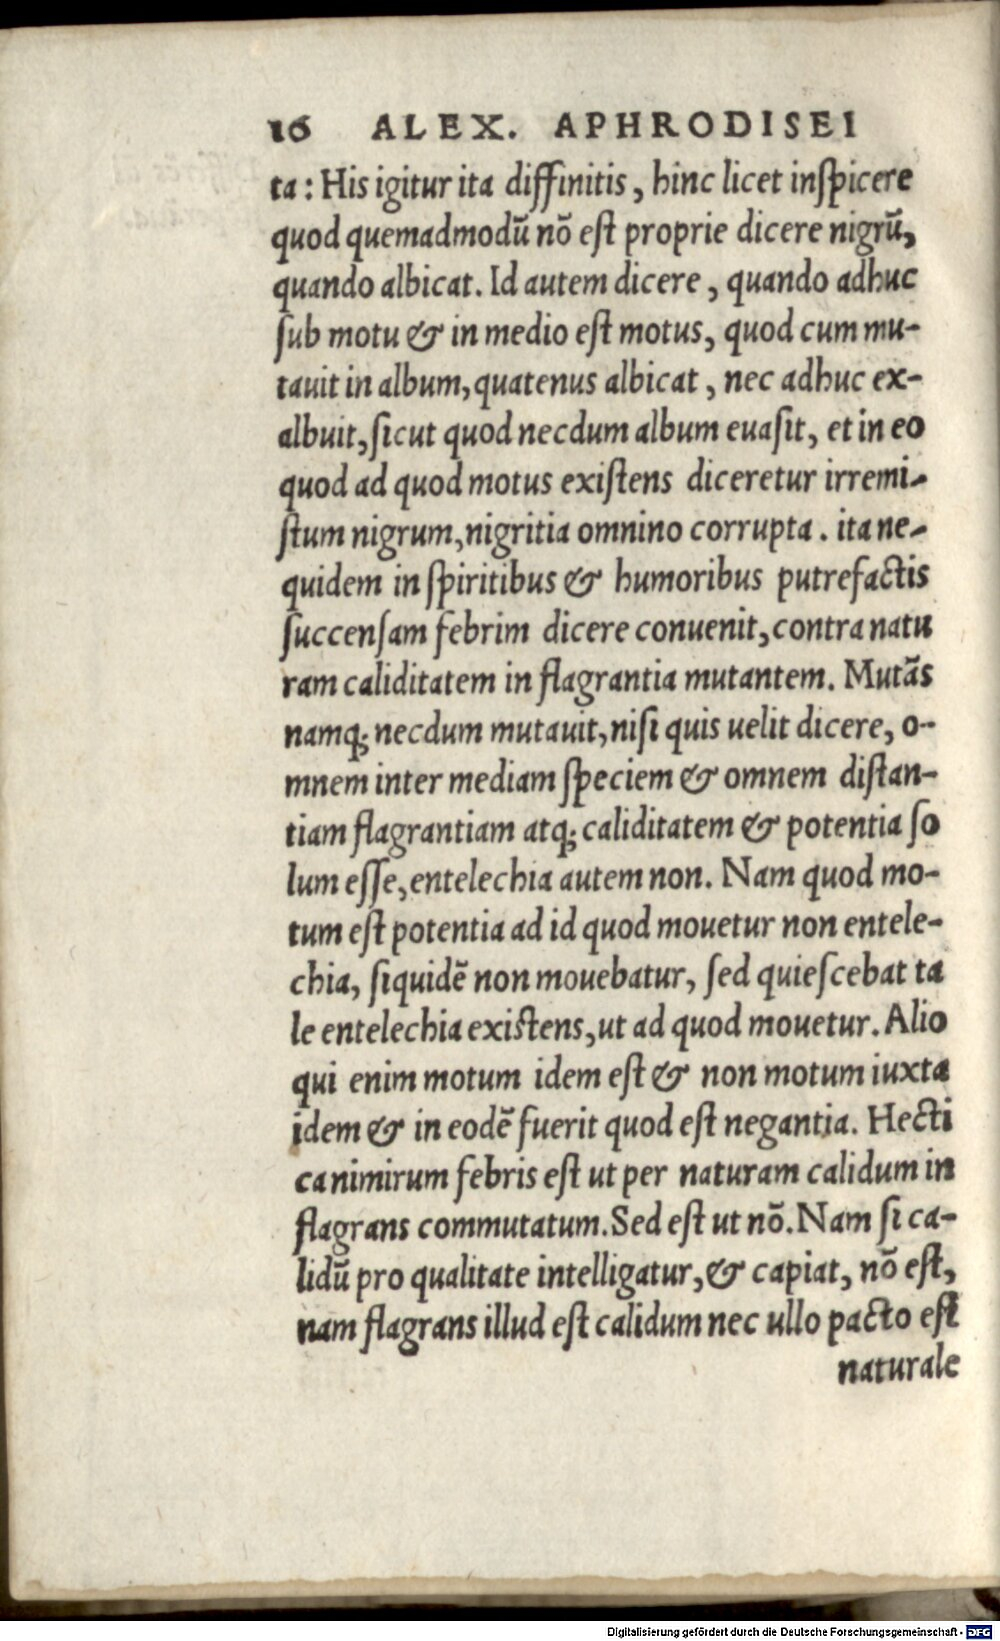 16 ALEX. APHRODISEI
ta: His igitur ita diffinitis, hinc licet inſpicere
quod quemadmodū nō eſt proprie dicere nigrū,
quando albicat. Id autem dicere, quando adhuc
ſub motu & in medio eſt motus, quod cum mu-
tauit in album, quatenus albicat, nec adhuc ex-
albuit, ſicut quod necdum album euaſit, et in eo
quod ad quod motus exiſtens diceretur irremi-
ſtum nigrum, nigritia omnino corrupta. ita ne-
quidem in ſpiritibus & humoribus putrefactis
ſuccenſam febrim dicere conuenit, contra natu
ram caliditatem in flagrantia mutantem. Mutās
namq; necdum mutauit, niſi quis uelit dicere, o-
mnem inter mediam ſpeciem & omnem diſtan-
tiam flagrantiam atq; caliditatem & potentia ſo
lum eſſe, entelechia autem non. Nam quod mo-
tum eſt potentia ad id quod mouetur non entele-
chia, ſiquidē non mouebatur, ſed quieſcebat ta
le entelechia exiſtens, ut ad quod mouetur. Alio
qui enim motum idem eſt & non motum iuxta
idem & in eodē fuerit quod eſt negantia. Hecti
ca nimirum febris eſt ut per naturam calidum in
flagrans commutatum. Sed eſt ut nō. Nam ſi ca-
lidū pro qualitate intelligatur, & capiat, nō eſt,
nam flagrans illud eſt calidum nec ullo pacto eſt
naturale
Digitalisierung gefördert durch die Deutsche Forschungsgemeinschaft - DFG